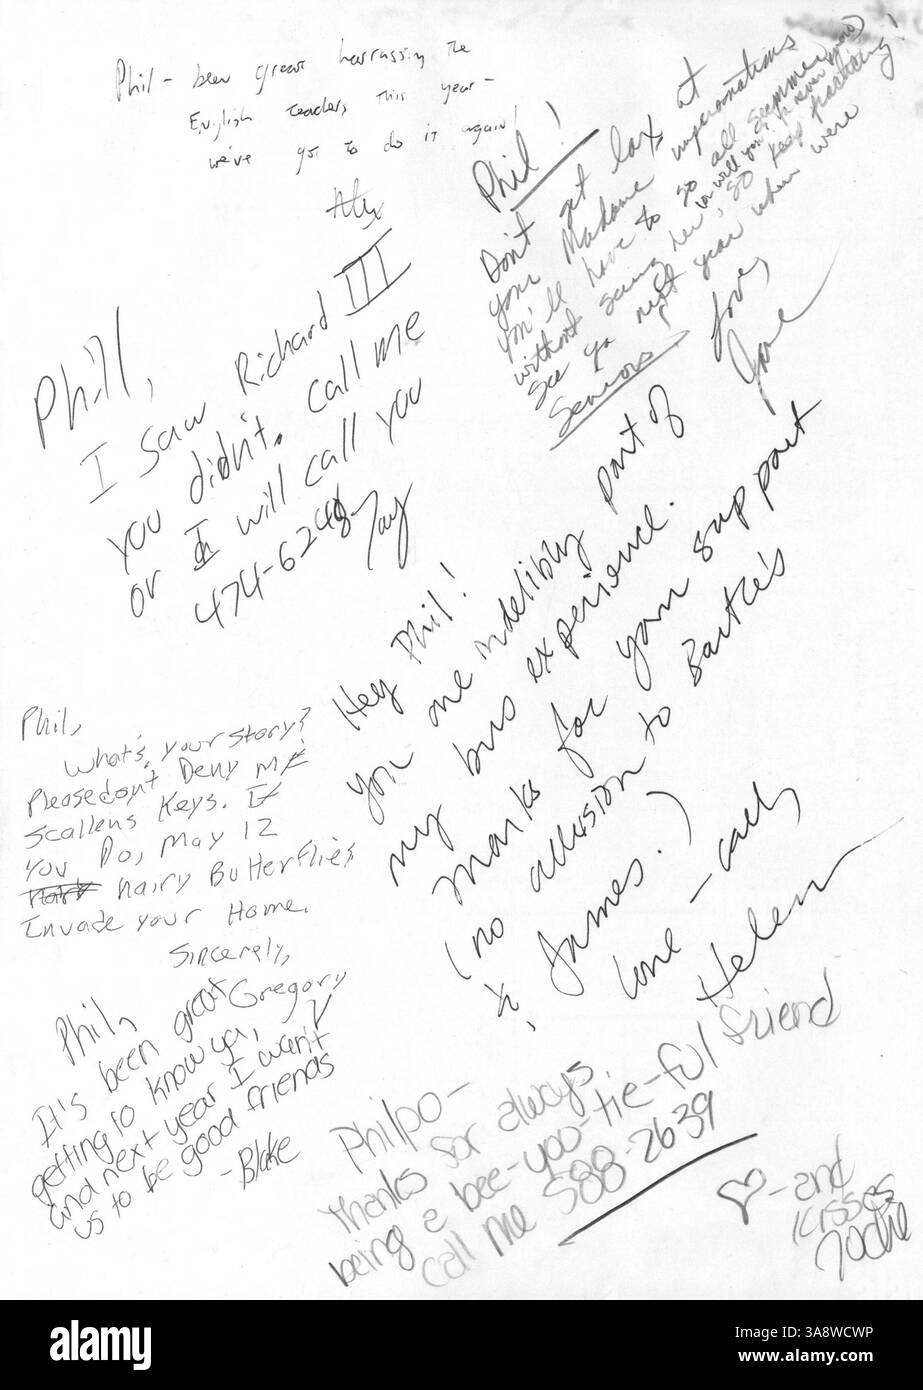 Phil - been great harrassing the
English teachers this year -
we've got to do it again!
Alex
Phil!
Don't get lax at
your Madame impersonations
You'll have to go all summer
without seeing her, so keep practicing!
See ya next year when we're
Seniors
Love,
Jane
Phill,
I saw Richard III
you didn't. Call me
or I will call you
474-6248
Jay
Hey Phil!
You are indelibly part of
my bus experience.
Thanks for your support
(no allusion to Bartles
& James.)
Love - Cady
Helen
Phil,
What's your story?
Please don't Deny me
Scallens Keys. If
You Do, May 12
hairy Butterflies
Invade your Home.
Sincerely,
Gregory
Phil,
It's been great
getting to know ya,
and next year I want
us to be good friends
-Blake
Philpo -
Thanks for always
being a bee-yoo-tie-ful friend
call me 588-2639
♡ - and
Kisses
Jackie
alamy
Image ID: 3A8WCWP
www.alamy.com